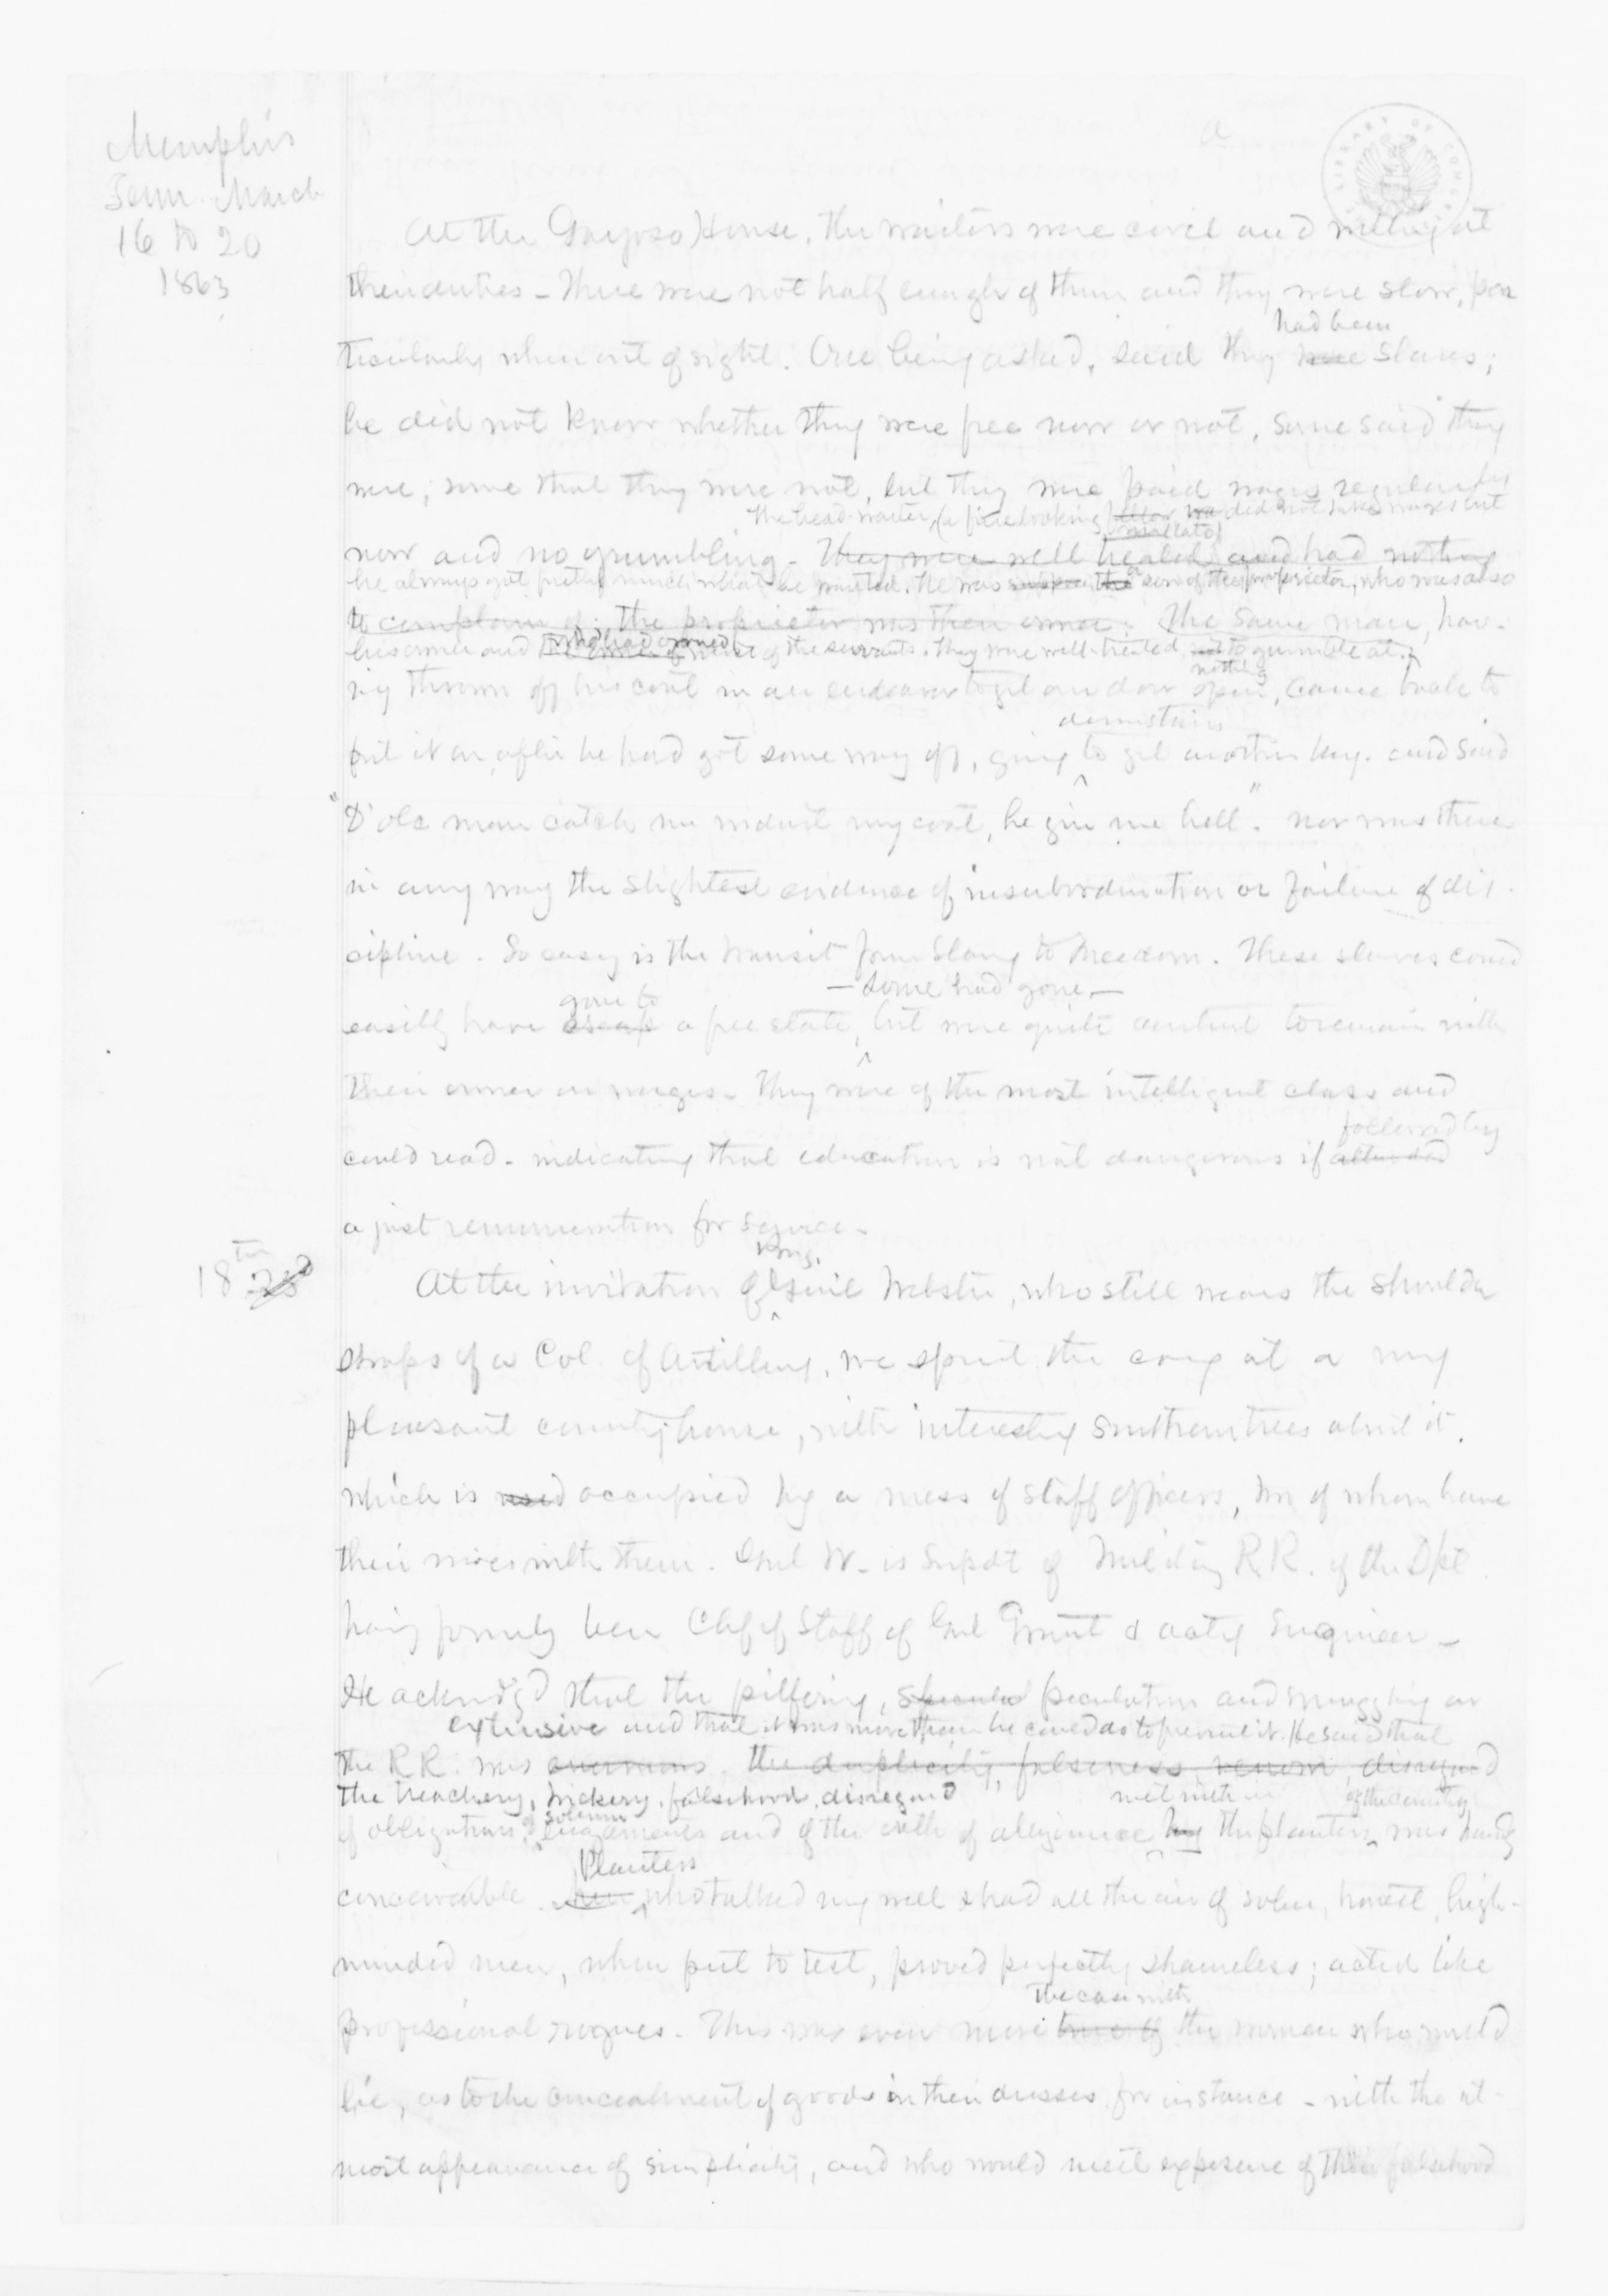 Memphis
Tenn. March
16 to 20
1863
a
LIBRARY OF CONGRESS
At the Gayoso House, the waiters were civil and willing at
their duties - There were not half enough of them and they were slow, par
had been
ticularly when out of sight. One being asked, said they were slaves;
he did not know whether they were free now or not, some said they
were; some that they were not, but they were paid wages regularly
The head-waiter, (a fine looking fellow mulatto) did not take wages but
now and no grumbling - They were well treated and had nothing
he always got pretty much what he wanted. He was the a son of the proprietor, who was also
to complain of: the proprietor was their owner. The same man, hav-
his owner and who had owned most of the servants. They were well-treated, nothing to grumble at.
ing thrown off his coat in an endeavor to get our door open, came back to
downstairs
put it on, after he had got some way off, going to get another key. and said
"D' ole man catch me widout my coat, he give me hell". nor was there
in any way the slightest evidence of insubordination or failure of dis-
cipline. So easy is the transit from Slavery to Freedom. These slaves could
gone to — some had gone —
easily have escape a free state, but were quite content to remain with
their owner on wages - They were of the most intelligent class and
followed by
could read - indicating that education is not dangerous if attended
a just remuneration for service -
18th 23d
Brig.
At the invitation of Genl Webster, who still wears the shoulder
straps of a Col. of Artillery, we spent the evng at a very
pleasant country house, with interesting southern trees about it.
which is used occupied by a mess of staff officers, two of whom have
their wives with them. Genl W - is Supdt of Military R R. of the Dpt
having formerly been Chf of Staff of Genl Grant & actg Engineer -
He acknowdg'd that the pilfering, peculation and smuggling on
extensive and that it was more than he could do to prevent it. He said that
the R R. was enormous. the duplicity, falseness venom, disregard
the treachery, trickery, falsehood, disregard met with in of the country
of obligations, of solemn engagements and of the oath of allegiance by the planters was hardly
Planters
conceivable. Men who talked very well & had all the air of sober, honest, high-
minded men, when put to test, proved perfectly shameless; acted like
the case with
professional rogues - This was even more true of the women who would
lie, as to the concealment of goods in their dresses for instance - with the ut-
most appearance of simplicity, and who would meet exposure of their falsehood